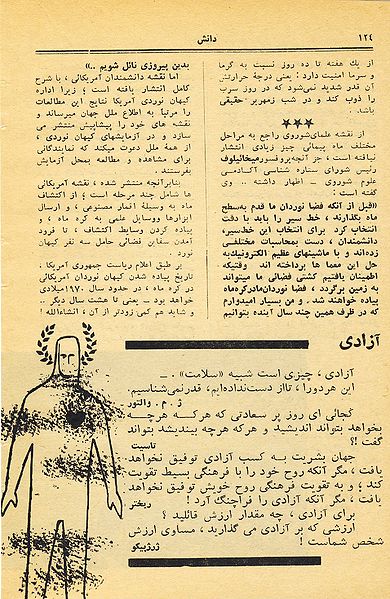 ۱۲۴
دانش
از یك هفته تا ده روز نسبت به گرما
و سرما امنیت دارد : یعنی درجهٔ حرارتش
آن قدر شدید نمی‌شود که در روز سرب
را ذوب کند و در شب زمهریر حقیقی
باشد .
★★★
از نقشه علمای‌شوروی راجع به مراحل
مختلف ماه پیمائی چیز زیادی انتشار
نیافته است ، جز آنچه‌پروفسورمیخائیلوف
رئیس شورای ستاره شناسی آکادمی
علوم شوروی ــ اظهار داشته . وی
گفته است :
«قبل از آنکه فضا نوردان ما قدم به‌سطح
ماه بگذارند ، خط سیر را باید با دقت
انتخاب کرد برای انتخاب این خط‌سیر،
دانشمندان ، دست بمحاسبات مختلفی
زده‌اند و با ماشینهای عظیم الکترونیك‌به
حل این معما ها پرداخته اند وقتیکه
اطمینان یافتیم کشتی فضائی ما میتواند
به زمین برگردد ، فضا نوردان‌مادرکره‌ماه
پیاده خواهند شد . و من بسیار امیدوارم
که در ظرف همین چند سال آینده بتوانیم
بدین پیروزی نائل شویم ..»
اما نقشه دانشمندان آمریکائی ، با شرح
کامل انتشار یافته است ؛ زیرا اداره
کیهان نوردی آمریکا نتایج این مطالعات
را مرتبا به اطلاع ملل جهان میرساند و
نقشه های خود را پیشاپیش منتشر می
سازد و در آزمایشهای کیهان نوردی ،
از همهٔ ملل دعوت میکند که نمایندگانی
برای مشاهده و مطالعه بمحل آزمایش
بفرستند .
بنابرآنچه منتشر شده ، نقشه آمریکائی
ها شامل چند مرحله است ؛ از اکتشاف
ماه به وسیلهٔ اقمار مصنوعی ، و ارسال
ابزارها ووسایل علمی به کره ماه ، و
پیاده کردن وسایط اکتشاف ، تا فرود
آمدن سفاین فضائی حامل سه نفر کیهان
نورد .
بر طبق اعلام ریاست جمهوری آمریکا ،
تاریخ پیاده شدن کیهان نوردان آمریکائی
در کره ماه ، در حدود سال ۱۹۷۰میلادی
خواهد بود ــ یعنی تا هشت سال دیگر ،
و شاید هم کمی زودتر از آن ، انشاءالله !
آزادی
آزادی ، چیزی است شبیه «سلامت» . ــ
این هردورا ، تااز دست‌نداده‌ایم، قدرنمی‌شناسیم.
م . والتور
کجائی ای روز پر سعادتی که هرکه هرچه
بخواهد بتواند اندیشید و هرکه هرچه بیندیشد بتواند
گفت !؟
تاسیت
جهان بشریت به کسب آزادی توفیق نخواهد
یافت ، مگر آنکه روح خود را با فرهنگی بسیط تقویت
کند ؛ و به تقویت فرهنگی روح خویش توفیق نخواهد
یافت ، مگر آنکه آزادی را فراچنگ آرد !
ریختر
برای آزادی ، چه مقدار ارزش قائلید ؟
ارزشی که بر آزادی می گذارید ، مساوی ارزش
شخص شماست !
ژرژبیکو